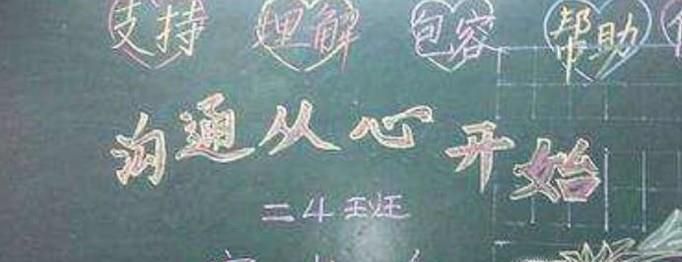 支持 理解 包容 帮助
沟通从心开始
二4班